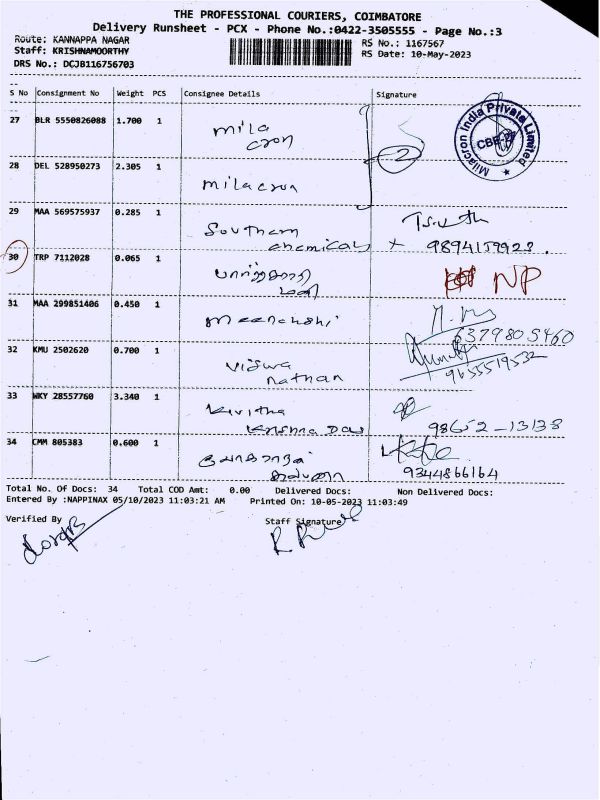 THE PROFESSIONAL COURIERS, COIMBATORE
Delivery Runsheet - PCX - Phone No.:0422-3505555 - Page No.:3
Route: KANNAPPA NAGAR
RS No.: 1167567
Staff: KRISHNAMOORTHY
RS Date: 10-May-2023
DRS No.: DCJB116756703
S No Consignment No Weight PCS Consignee Details Signature
27 BLR 5550826088 1.700 1 mila cron
Milacron India Private Limited
28 DEL 528950273 2.305 1 milacron
2
29 MAA 569575937 0.285 1 Southern
chemicals x 9894159923.
30 TRP 7112028 0.065 1 NP
31 MAA 299851406 0.450 1 meenakshi
6379805460
32 KMU 2502620 0.700 1 Viswa
nathan 9655519532
33 WKY 28557760 3.340 1 Kavitha
Krishna Das 98652-13133
34 CMM 805383 0.600 1
9344866164
Total No. Of Docs: 34 Total COD Amt: 0.00 Delivered Docs: Non Delivered Docs:
Entered By :NAPPINAX 05/10/2023 11:03:21 AM Printed On: 10-05-2023 11:03:49
Verified By Staff Signature